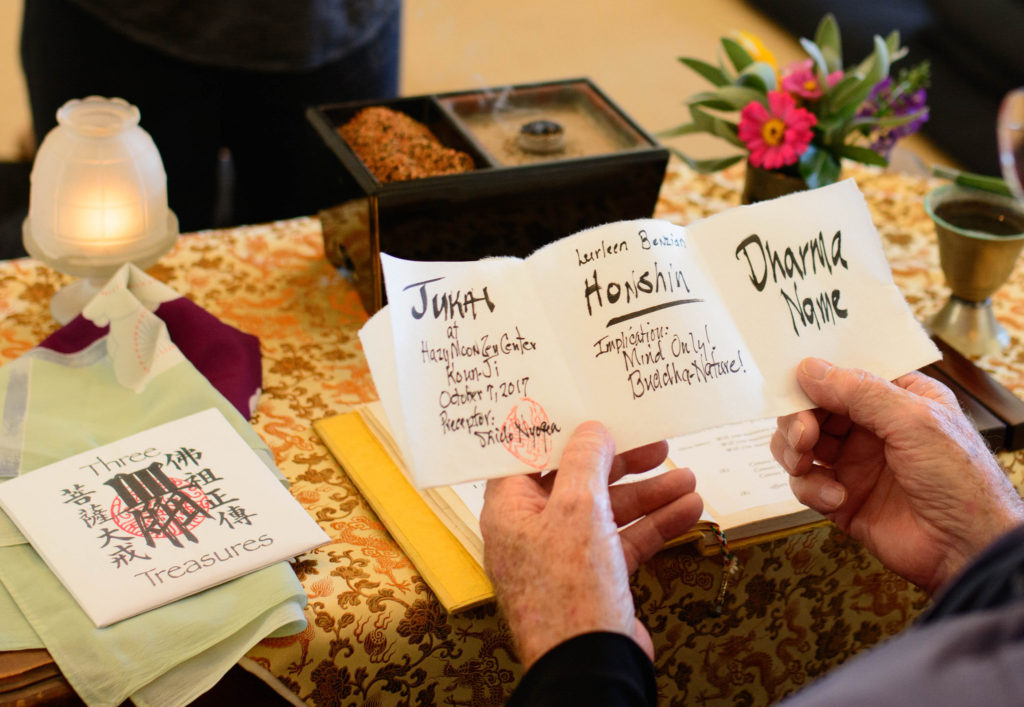 Jukai
at
Hazy Moon Zen Center
Koun-Ji
October 7, 2017
Preceptor:
Shido Nyogen
Lurleen Benzian
Honshin
Implication:
Mind Only!
Buddha-Nature!
Dharma
Name
Three
佛祖正傳
菩薩大戒
Treasures